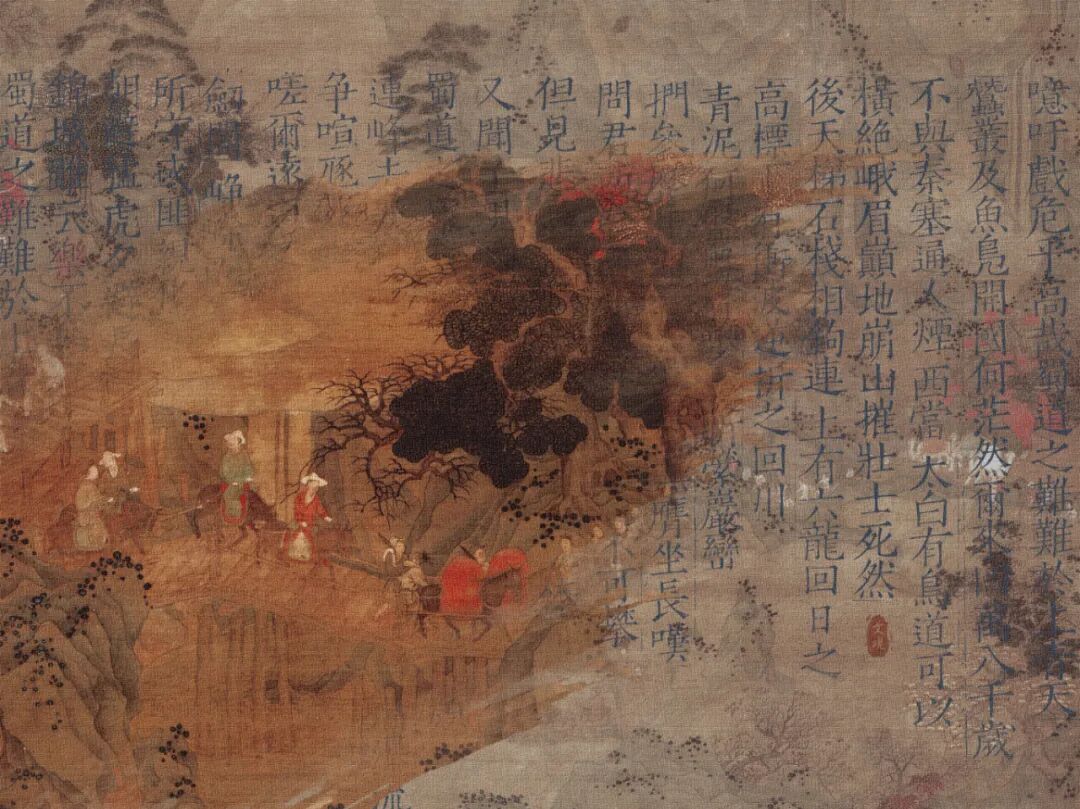 噫吁戲危乎高哉蜀道之難難於上青天
蠶叢及魚鳧開國何茫然爾來四萬八千歲
不與秦塞通人煙西當太白有鳥道可以
橫絕峨眉巔地崩山摧壯士死然
後天梯石棧相鉤連上有六龍回日之
高標 折之回川
青泥 縈巖巒
捫參 膺坐長嘆
問君 可攀
但見悲
又聞
蜀道
連峰去
爭喧豗
嗟爾遠
劍閣崢
所守或匪
朝避猛虎夕
錦城雖云樂不
蜀道之難難於上